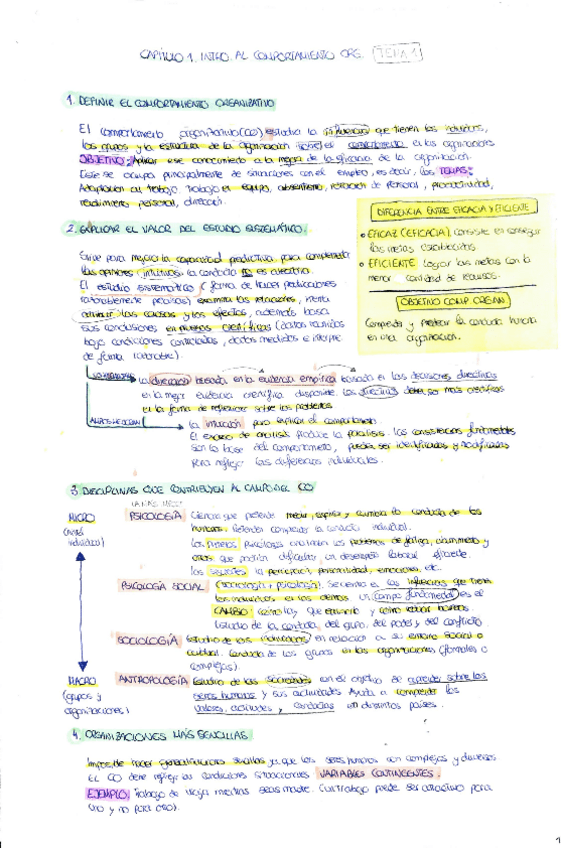 CAPÍTULO 1. INTRO. AL COMPORTAMIENTO ORG. TEMA 1
1. DEFINIR EL COMPORTAMIENTO ORGANIZATIVO
El comportamiento organizativo (CO) estudia la influencia que tienen los individuos,
los grupos y la estructura de la organización sobre el comportamiento en las organizaciones
OBJETIVO: Aplicar ese conocimiento a la mejora de la eficacia de la organización.
Este se ocupa principalmente de situaciones con el empleo, es decir, los TEMAS:
Adaptación al trabajo, trabajo en equipo, absentismo, rotación de personal, productividad,
rendimiento personal, dirección.
DIFERENCIA ENTRE EFICACIA Y EFICIENTE
• EFICAZ (EFICACIA). Consiste en conseguir
las metas establecidas.
• EFICIENTE. Lograr las metas con la
menor cantidad de recursos.
OBJETIVO COMP. ORGAN
Comprender y predecir la conducta humana
en una organización.
2. EXPLICAR EL VALOR DEL ESTUDIO SISTEMÁTICO.
Sirve para mejorar la capacidad productiva, para complementar
las opiniones intuitivas: la conducta NO es aleatoria.
El estudio sistemático (forma de hacer predicciones
razonablemente precisas) examina las relaciones, intenta
las causas y los efectos, además basa
sus conclusiones en pruebas científicas (datos reunidos
bajo condiciones controladas, datos medidos e interpre
de forma razonable).
La dirección basada en la evidencia empírica basada en las decisiones directivas
en la mejor evidencia científica disponible. Los directivos deben ser más científicos
en la forma de reflexionar sobre los problemas
La intuición para explicar el comportamiento
El exceso de análisis produce la parálisis. Las consistencias fundamentales
son la base del comportamiento, pueden ser identificadas y modificadas
para reflejar las diferencias individuales.
3. DISCIPLINAS QUE CONTRIBUYEN AL CAMPO DEL CO
MICRO
(nivel
individual)
PSICOLOGÍA Ciencia que pretende medir, explicar y cambiar la conducta de los
humanos. Pretenden comprender la conducta individual.
Los primeros psicólogos analizaron los problemas de fatiga, aburrimiento y
otros que podrían dificultar un desempeño laboral eficiente.
Los siguientes la percepción, personalidad, emociones, etc.
PSICOLOGÍA SOCIAL (sociología y psicología). Se centra en las influencias que tienen
los individuos en los demás. Un campo fundamental es el
CAMBIO: cómo y cómo reducir barreras.
Estudio de la conducta del grupo, del poder y del conflicto
SOCIOLOGÍA Estudio de los individuos en relación a su entorno social o
cultural. Conducta de los grupos en las organizaciones (formales o
complejas).
MACRO
(grupos y
organizaciones)
ANTROPOLOGÍA Estudio de las sociedades con el objetivo de aprender sobre los
seres humanos y sus actividades. Ayuda a comprender los
valores, actitudes y conductas en distintos países.
4. ORGANIZACIONES MÁS SENCILLAS
Imposible hacer generalizaciones sencillas ya que los seres humanos son complejos y diversos.
EL CO debe reflejar las condiciones situacionales: VARIABLES CONTINGENTES.
EJEMPLO: Trabajo de viajar mientras seas madre. Cual trabajo puede ser atractivo para
uno y no para otro).
1